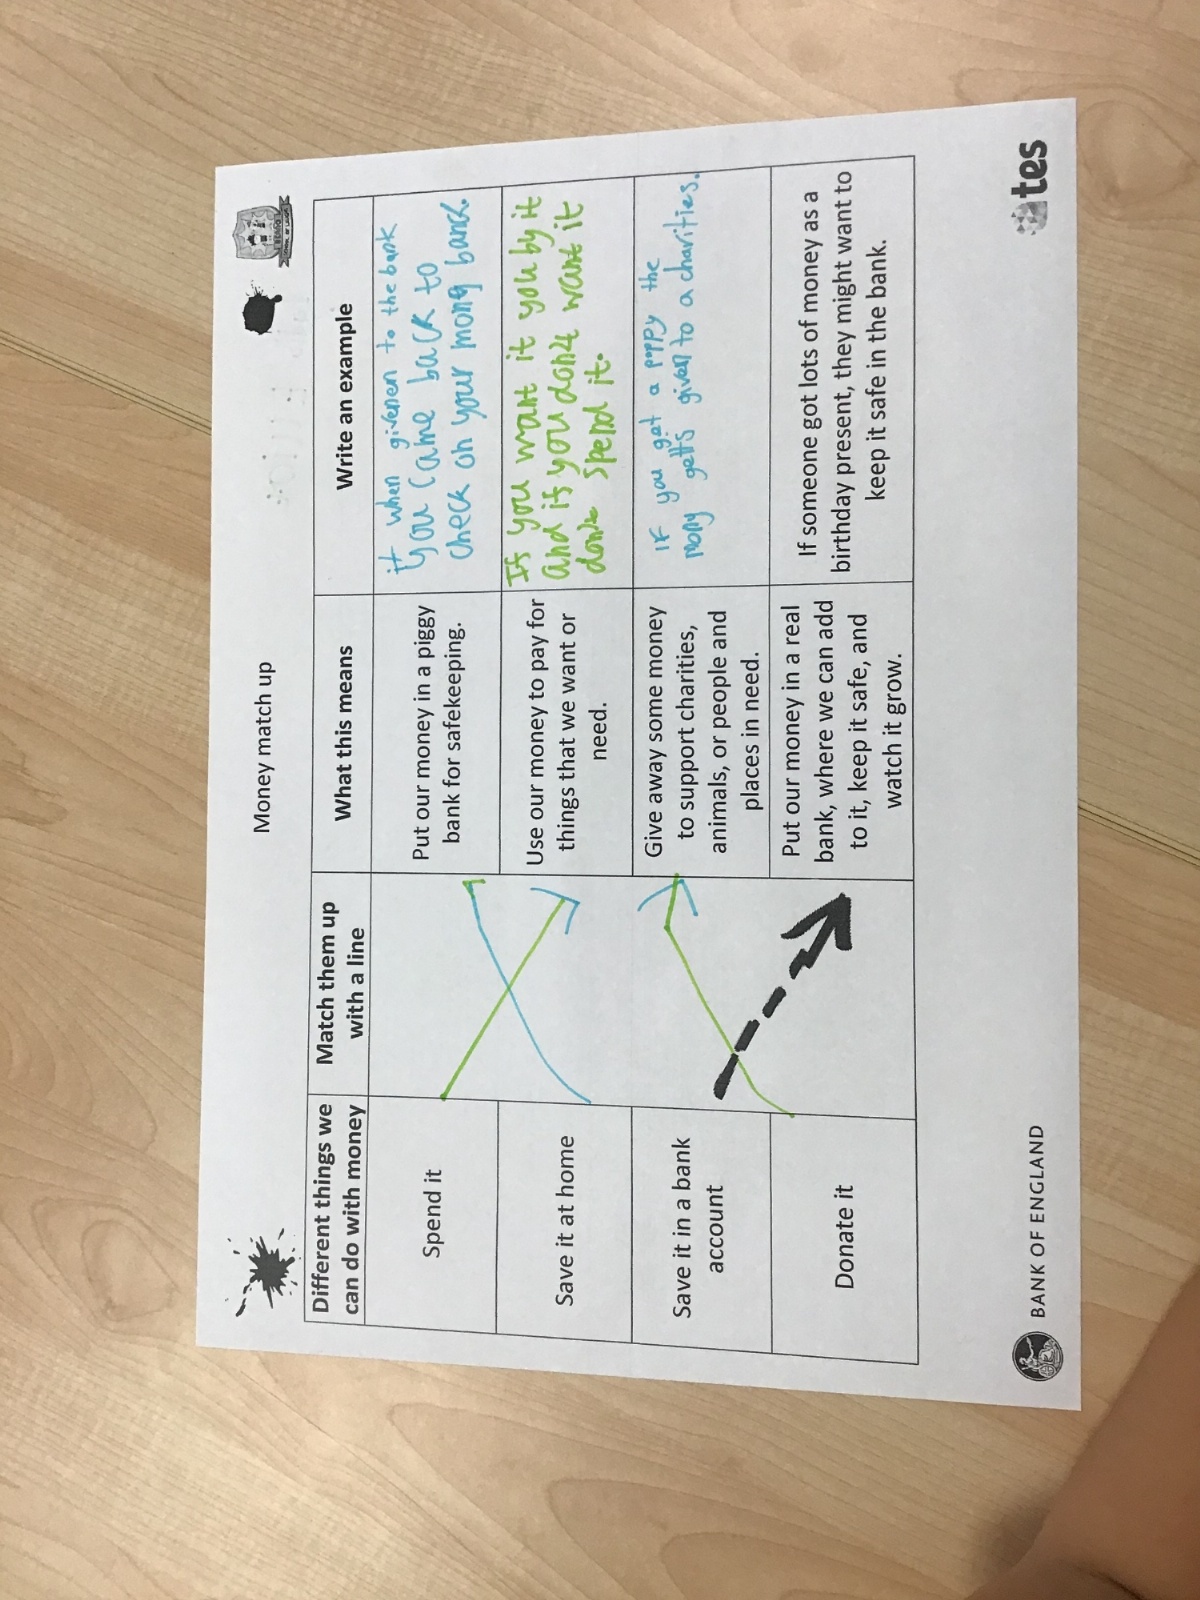 Money match up
Different things we
can do with money
Match them up
with a line
What this means
Write an example
Spend it
Put our money in a piggy
bank for safekeeping.
it when givenen to the bank
you came back to
check on your mony bank.
Save it at home
Use our money to pay for
things that we want or
need.
If you want it you by it
and if you dont want it
dont spend it.
Save it in a bank
account
Give away some money
to support charities,
animals, or people and
places in need.
If you get a poppy the
mony getts given to a charities.
Donate it
Put our money in a real
bank, where we can add
to it, keep it safe, and
watch it grow.
If someone got lots of money as a
birthday present, they might want to
keep it safe in the bank.
BANK OF ENGLAND
tes